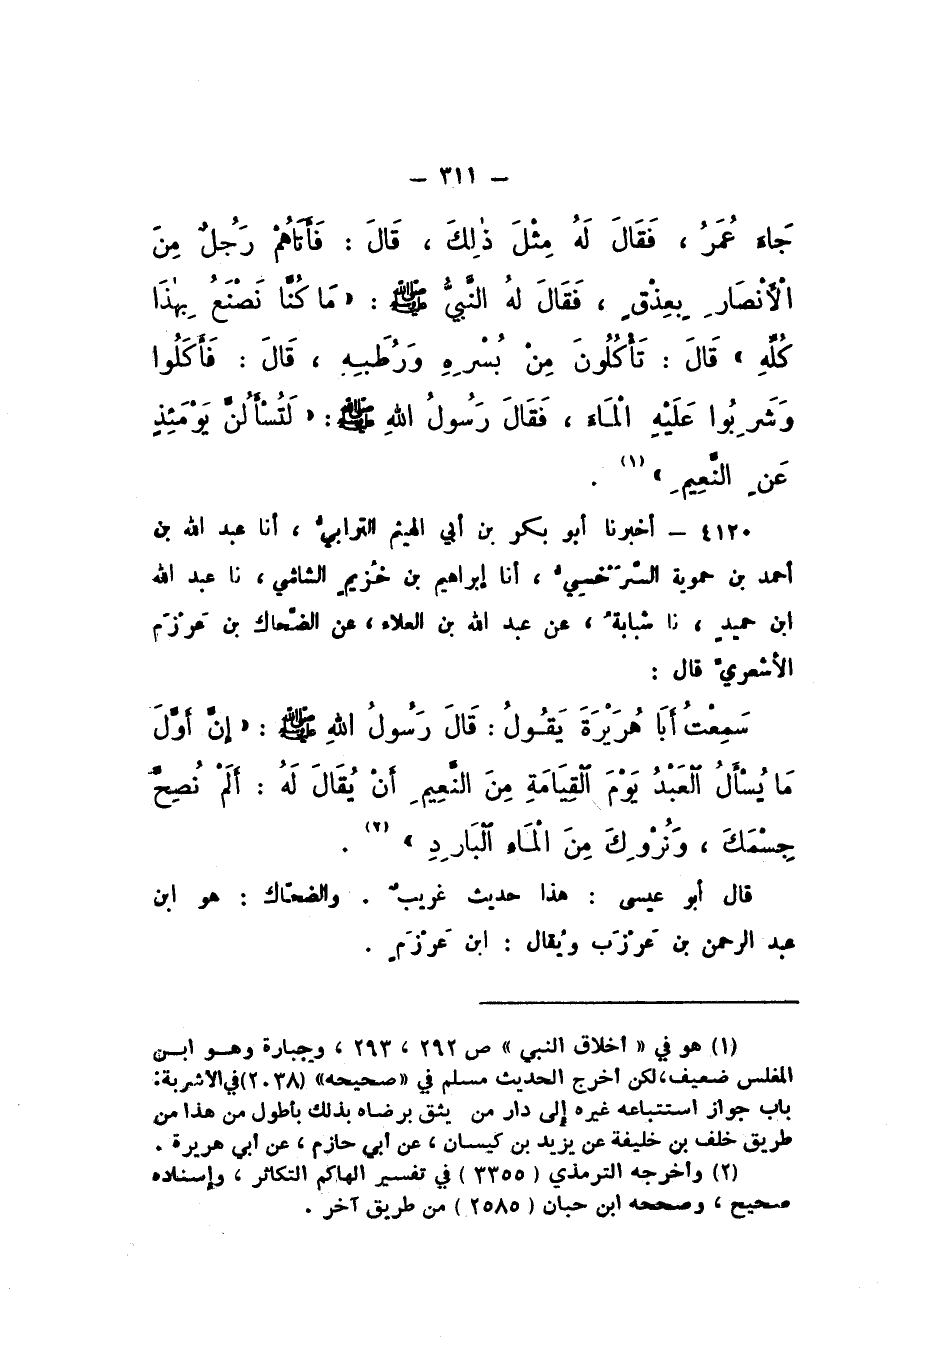 — ٣١١ —
جَاءَ عُمَرُ ، فَقَالَ لَهُ مِثْلَ ذٰلِكَ ، قَالَ : فَأَتَاهُمْ رَجُلٌ مِنَ
الْأَنْصَارِ بِعِذْقٍ ، فَقَالَ لهُ النَّبيُّ ﷺ : « مَا كُنَّا نَصْنَعُ بِهٰذَا
كُلَّهِ » قَالَ : تَأْكُلُونَ مِنْ بُسْرِهِ وَرُطَبِهِ ، قَالَ : فَأَكَلُوا
وَشَرِبُوا عَلَيْهِ الْمَاءَ ، فَقَالَ رَسُولُ اللهِ ﷺ : « لَتُسْأَلُنَّ يَوْمَئِذٍ
عَنِ النَّعِيمِ » (١) .
٤١٢٠ – أخبرنا أبو بكر بن أبي الهيثم الترابيُّ ، أنا عبد الله بن
أحمد بن حموية السَّرَخسِيُّ ، أنا إبراهيم بن خُزيمٍ الشاشي ، نا عبد الله
ابن حميدٍ ، نا شبابةُ ، عن عبد الله بن العلاء ، عن الضحّاك بن عَرْزَم
الأشعريِّ قال :
سَمِعْتُ أَبَا هُرَيْرَةَ يَقُولُ : قَالَ رَسُولُ اللهِ ﷺ : « إِنَّ أَوَّلَ
مَا يُسْأَلُ العَبْدُ يَوْمَ القِيَامَةِ مِنَ النَّعِيمِ أَنْ يُقَالَ لَهُ : أَلَمْ نُصِحَّ
جِسْمَكَ ، وَنُرْوِكَ مِنَ الْمَاءِ البَارِدِ » (٢) .
قال أبو عيسى : هذا حديث غريبٌ . والضحّاك : هو ابن
عبد الرحمن بن عَرْزَب ويُقال : ابن عَرْزَمٍ .
(١) هو في « أخلاق النبي » ص ٢٩٢ ، ٢٩٣ ، وجبارة وهو ابن
المغلس ضعيف،لكن أخرج الحديث مسلم في «صحيحه» (٢٠٣٨)في الأشربة:
باب جواز استتباعه غيره إلى دار من يثق برضاه بذلك بأطول من هذا من
طريق خلف بن خليفة عن يزيد بن كيسان ، عن أبي حازم ، عن أبي هريرة .
(٢) وأخرجه الترمذي ( ٣٣٥٥ ) في تفسير الهاكم التكاثر ، وإسناده
صحيح ، وصححه ابن حبان ( ٢٥٨٥ ) من طريق آخر .